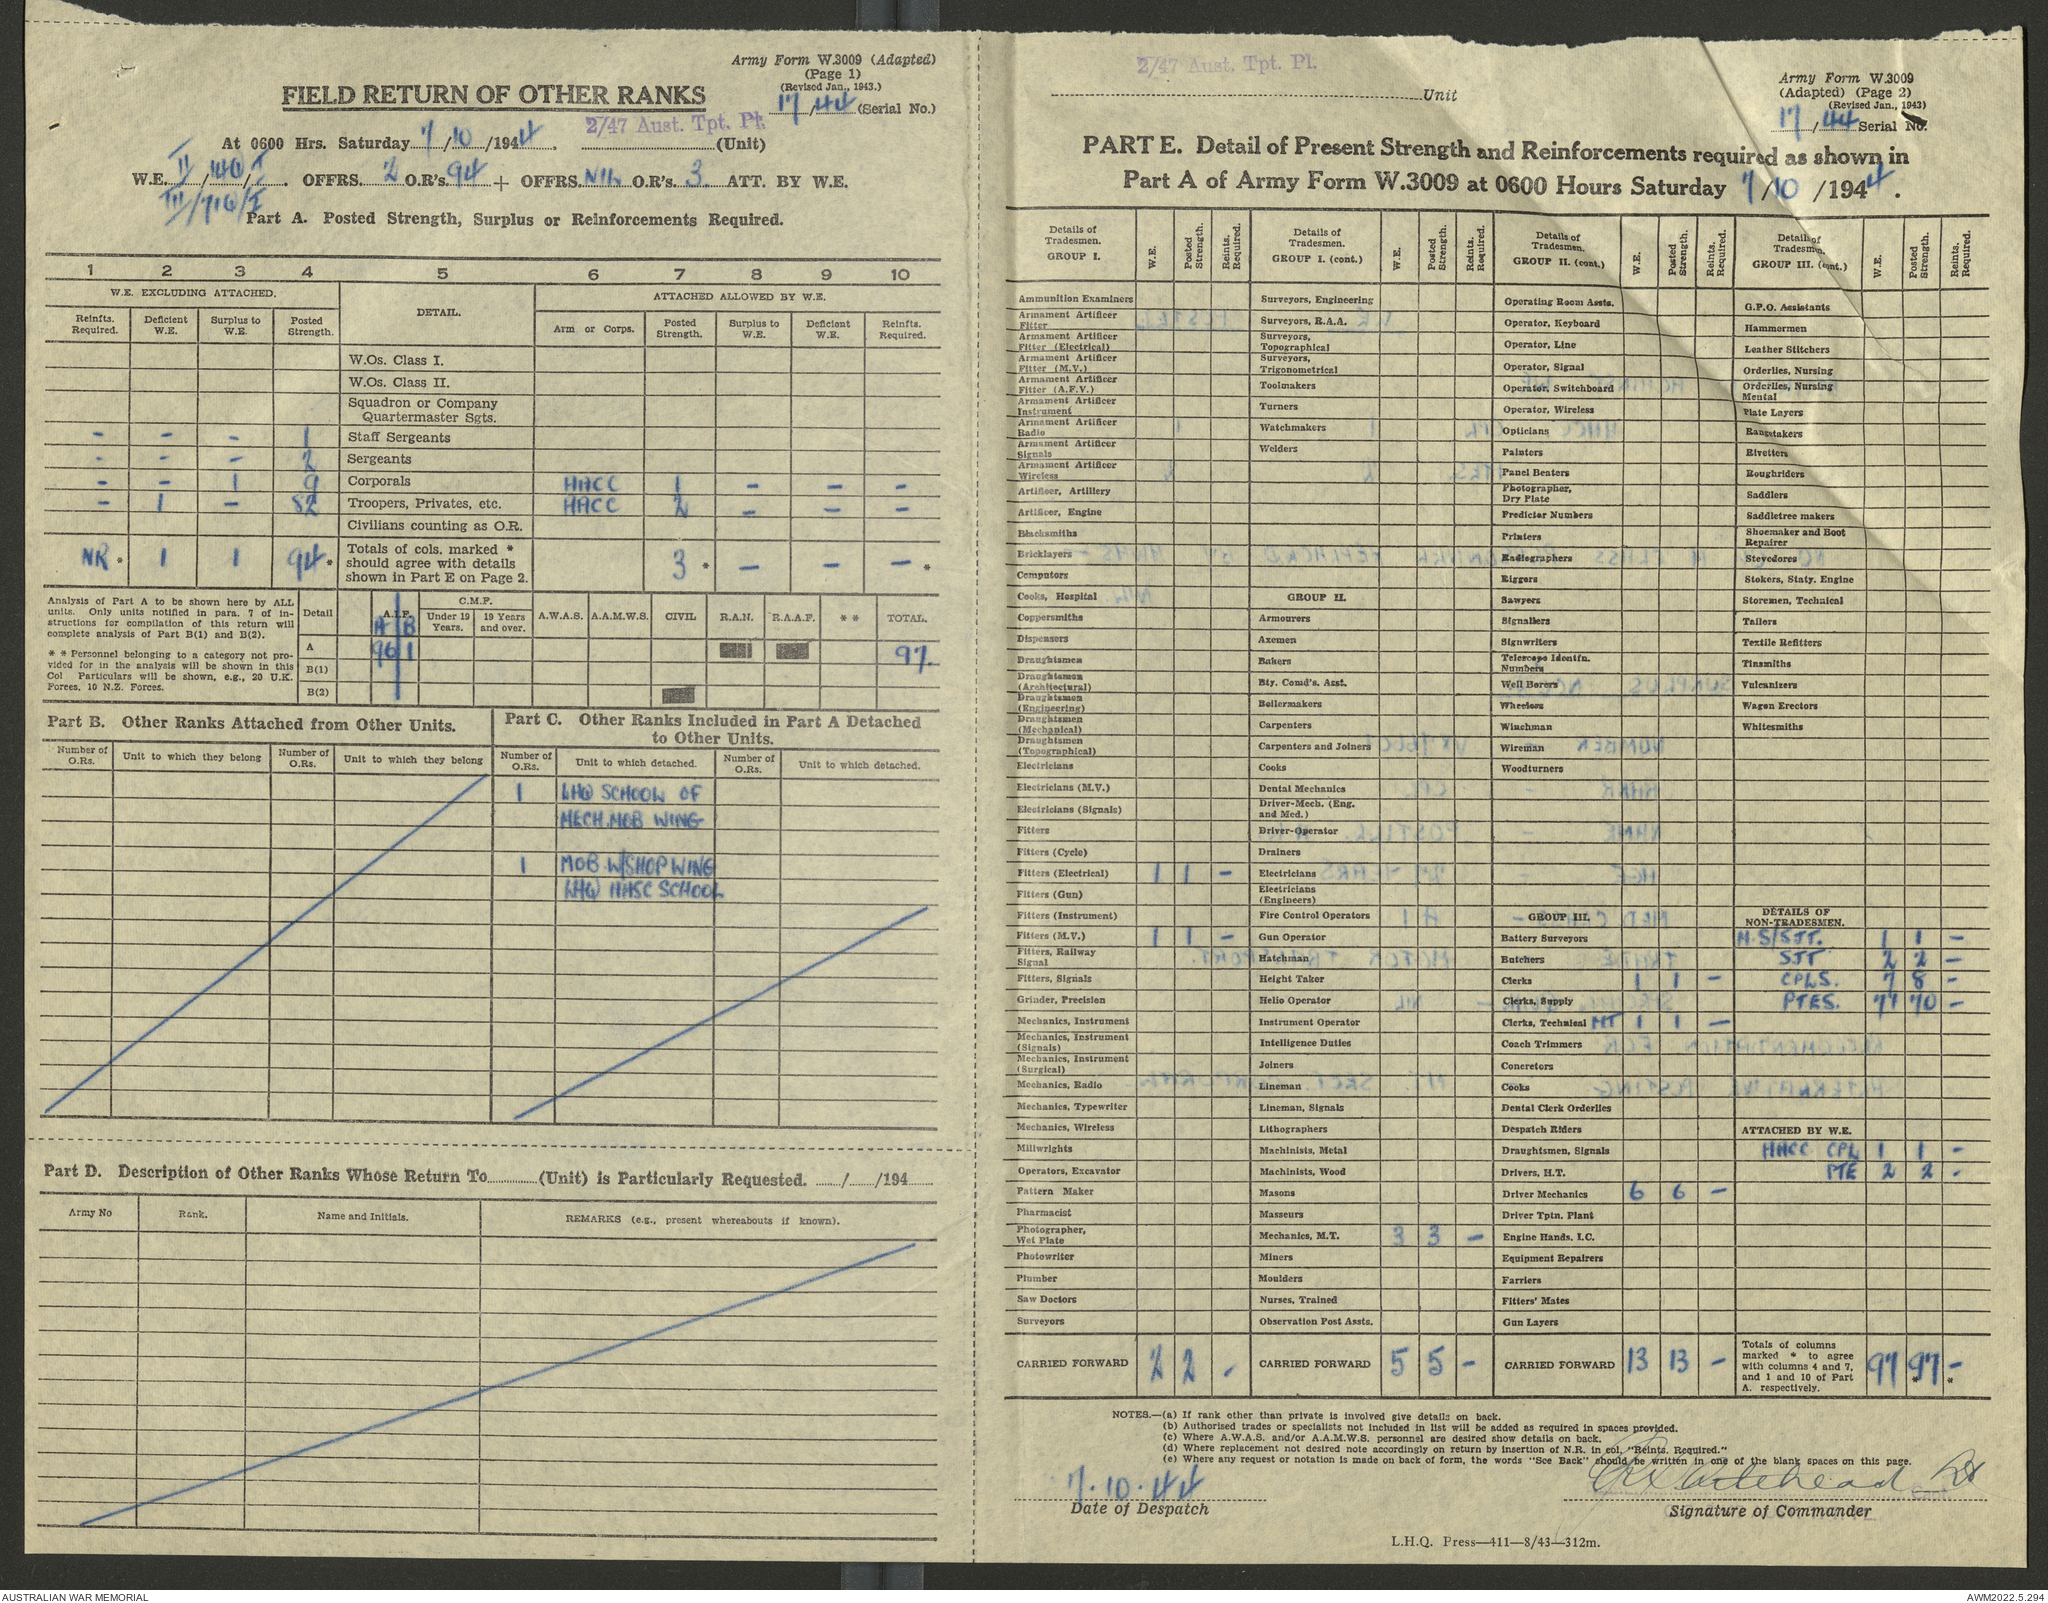 Army Form W.3009 (Adapted)
(Page 1)
(Revised Jan., 1943.)
FIELD RETURN OF OTHER RANKS
17/44 (Serial No.)
2/47 Aust. Tpt. Pl.
At 0600 Hrs. Saturday 7/10/1944. (Unit)
W.E. II/140/I. OFFRS. 2 O.R's. 94 + OFFRS. NIL O.R's. 3 ATT. BY W.E.
III/710/I
Part A. Posted Strength, Surplus or Reinforcements Required.
1 2 3 4 5 6 7 8 9 10
W.E. EXCLUDING ATTACHED. DETAIL. ATTACHED ALLOWED BY W.E.
Reinfts. Required. Deficient W.E. Surplus to W.E. Posted Strength. Arm or Corps. Posted Strength. Surplus to W.E. Deficient W.E. Reinfts. Required.
W.Os. Class I.
W.Os. Class II.
Squadron or Company
Quartermaster Sgts.
- - - 1 Staff Sergeants
- - - 2 Sergeants
- - 1 9 Corporals AACC 1 - - -
- 1 - 82 Troopers, Privates, etc. AACC 2 - - -
Civilians counting as O.R.
NR * 1 1 94 * Totals of cols. marked * should agree with details shown in Part E on Page 2. 3 * - - - *
Analysis of Part A to be shown here by ALL
units. Only units notified in para. 7 of in-
structions for compilation of this return will
complete analysis of Part B(1) and B(2).
* * Personnel belonging to a category not pro-
vided for in the analysis will be shown in this
Col Particulars will be shown, e.g., 20 U.K.
Forces, 10 N.Z. Forces.
Detail A.I.F. C.M.F. A.W.A.S. A.A.M.W.S. CIVIL R.A.N. R.A.A.F. * * TOTAL.
A B Under 19 Years. 19 Years and over.
A 96 1 97.
B(1)
B(2)
Part B. Other Ranks Attached from Other Units.
Number of O.Rs. Unit to which they belong Number of O.Rs. Unit to which they belong
Part C. Other Ranks Included in Part A Detached
to Other Units.
Number of O.Rs. Unit to which detached. Number of O.Rs. Unit to which detached.
1 LHQ SCHOOL OF
MECH. MOB WING
1 MOB W/SHOP WING
LHQ AASC SCHOOL
Part D. Description of Other Ranks Whose Return To (Unit) is Particularly Requested. / /194
Army No Rank. Name and Initials. REMARKS (e.g., present whereabouts if known).
2/47 Aust. Tpt. Pl.
Unit
Army Form W.3009
(Adapted) (Page 2)
(Revised Jan., 1943)
17/44 Serial No.
PART E. Detail of Present Strength and Reinforcements required as shown in
Part A of Army Form W.3009 at 0600 Hours Saturday 7/10/1944.
Details of Tradesmen. GROUP I. W.E. Posted Strength. Reints. Required.
Ammunition Examiners
Armament Artificer Fitter
Armament Artificer Fitter (Electrical)
Armament Artificer Fitter (M.V.)
Armament Artificer Fitter (A.F.V.)
Armament Artificer Instrument
Armament Artificer Radio
Armament Artificer Signals
Armament Artificer Wireless
Artificer, Artillery
Artificer, Engine
Blacksmiths
Bricklayers
Computors
Cooks, Hospital
Coppersmiths
Dispensers
Draughtsmen
Draughtsmen (Architectural)
Draughtsmen (Engineering)
Draughtsmen (Mechanical)
Draughtsmen (Topographical)
Electricians
Electricians (M.V.)
Electricians (Signals)
Fitters
Fitters (Cycle)
Fitters (Electrical) 1 1 -
Fitters (Gun)
Fitters (Instrument)
Fitters (M.V.) 1 1 -
Fitters, Railway Signal
Fitters, Signals
Grinder, Precision
Mechanics, Instrument
Mechanics, Instrument (Signals)
Mechanics, Instrument (Surgical)
Mechanics, Radio
Mechanics, Typewriter
Mechanics, Wireless
Millwrights
Operators, Excavator
Pattern Maker
Pharmacist
Photographer, Wet Plate
Photowriter
Plumber
Saw Doctors
Surveyors
CARRIED FORWARD 2 2 -
Details of Tradesmen. GROUP I. (cont.) W.E. Posted Strength. Reints. Required.
Surveyors, Engineering
Surveyors, R.A.A.
Surveyors, Topographical
Surveyors, Trigonometrical
Toolmakers
Turners
Watchmakers
Welders
GROUP II.
Armourers
Axemen
Bakers
Bty. Comd's. Asst.
Boilermakers
Carpenters
Carpenters and Joiners
Cooks
Dental Mechanics
Driver-Mech. (Eng. and Med.)
Driver-Operator
Drainers
Electricians
Electricians (Engineers)
Fire Control Operators
Gun Operator
Hatchman
Height Taker
Helio Operator
Instrument Operator
Intelligence Duties
Joiners
Lineman
Lineman, Signals
Lithographers
Machinists, Metal
Machinists, Wood
Masons
Masseurs
Mechanics, M.T. 3 3 -
Miners
Moulders
Nurses, Trained
Observation Post Assts.
CARRIED FORWARD 5 5 -
Details of Tradesmen. GROUP II. (cont.) W.E. Posted Strength. Reints. Required.
Operating Room Assts.
Operator, Keyboard
Operator, Line
Operator, Signal
Operator, Switchboard
Operator, Wireless
Opticians
Painters
Panel Beaters
Photographer, Dry Plate
Predictor Numbers
Printers
Radiographers
Riggers
Sawyers
Signallers
Signwriters
Telescope Identfn. Numbers
Well Borers
Wheelers
Winchman
Wireman
Woodturners
GROUP III.
Battery Surveyors
Butchers
Clerks 1 1 -
Clerks, Supply
Clerks, Technical MT 1 1 -
Coach Trimmers
Concretors
Cooks
Dental Clerk Orderlies
Despatch Riders
Draughtsmen, Signals
Drivers, H.T.
Driver Mechanics 6 6 -
Driver Tptn. Plant
Engine Hands, I.C.
Equipment Repairers
Farriers
Fitters' Mates
Gun Layers
CARRIED FORWARD 13 13 -
Details of Tradesmen. GROUP III. (cont.) W.E. Posted Strength. Reints. Required.
G.P.O. Assistants
Hammermen
Leather Stitchers
Orderlies, Nursing
Orderlies, Nursing Mental
Plate Layers
Rangetakers
Rivetters
Roughriders
Saddlers
Saddletree makers
Shoemaker and Boot Repairer
Stevedores
Stokers, Staty. Engine
Storemen, Technical
Tailors
Textile Refitters
Tinsmiths
Vulcanizers
Wagon Erectors
Whitesmiths
DETAILS OF NON-TRADESMEN.
A.S/SJT. 1 1 -
SJT 2 2 -
CPLS. 7 8 -
PTES. 71 70 -
ATTACHED BY W.E.
AACC CPL 1 1 -
PTE 2 2 -
Totals of columns marked * to agree with columns 4 and 7, and 1 and 10 of Part A. respectively. 97 97 * - *
NOTES.—(a) If rank other than private is involved give details on back.
(b) Authorised trades or specialists not included in list will be added as required in spaces provided.
(c) Where A.W.A.S. and/or A.A.M.W.S. personnel are desired show details on back.
(d) Where replacement not desired note accordingly on return by insertion of N.R. in col. "Reints. Required."
(e) Where any request or notation is made on back of form, the words "See Back" should be written in one of the blank spaces on this page.
7.10.44
Date of Despatch
Whitehead Lt
Signature of Commander
L.H.Q. Press—411—8/43—312m.
AUSTRALIAN WAR MEMORIAL
AWM2022.5.294